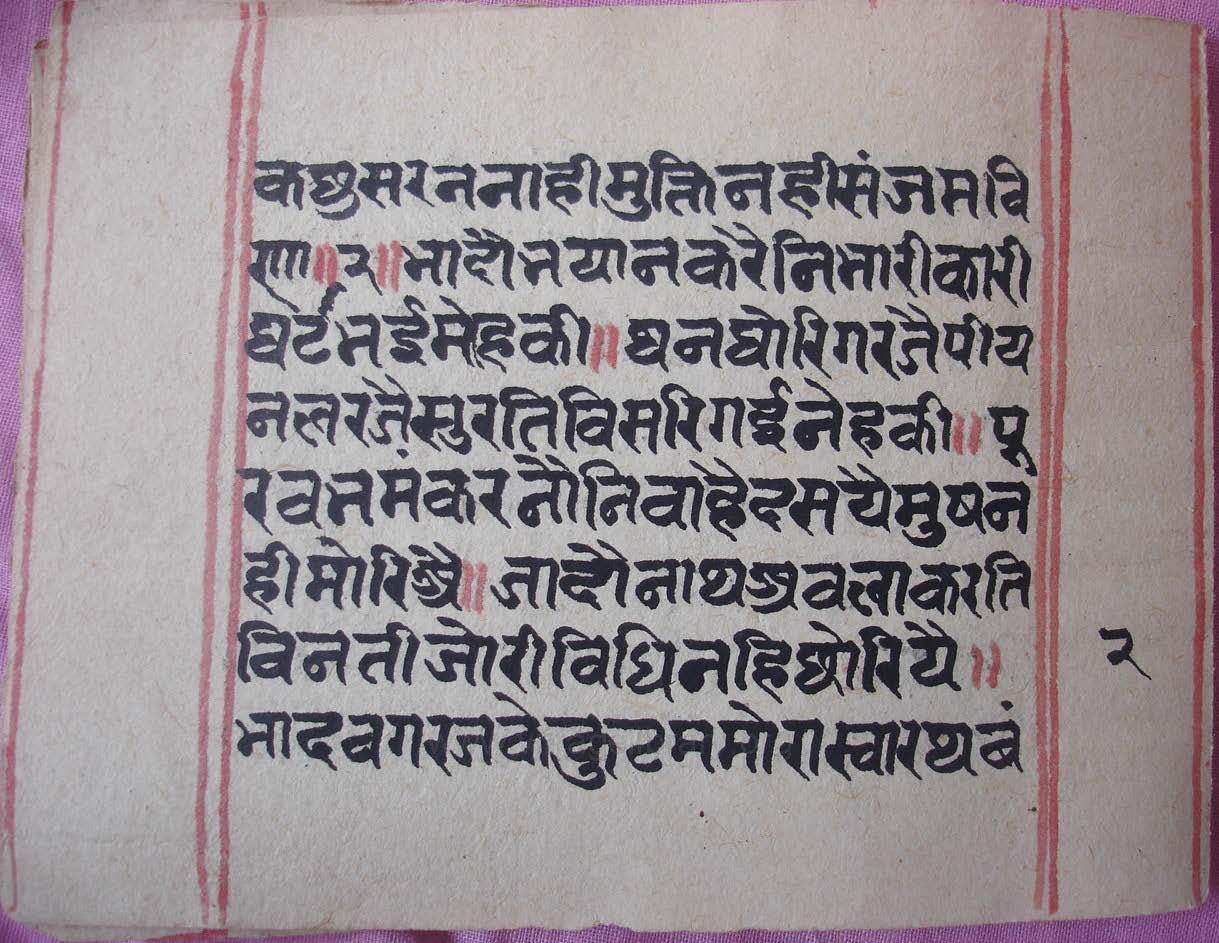 कछुसरननाहीमुक्तिनहीसंजमवि
राणा॥२॥भादौभयानकरैनिभारीकारी
घटभईमेहकी॥घनघोरिगरजैपीय
नलरजैसुरतिविसरिगईनेहकी॥पू
रवभमंकरनौनिवाहैदसयैमुषन
हीमोरिञै॥जादौनाथअवलाकरति
विनतीजोरीविधिनहिछोरियै॥
भादवगरजकेकुटममोरास्वारथबं
२